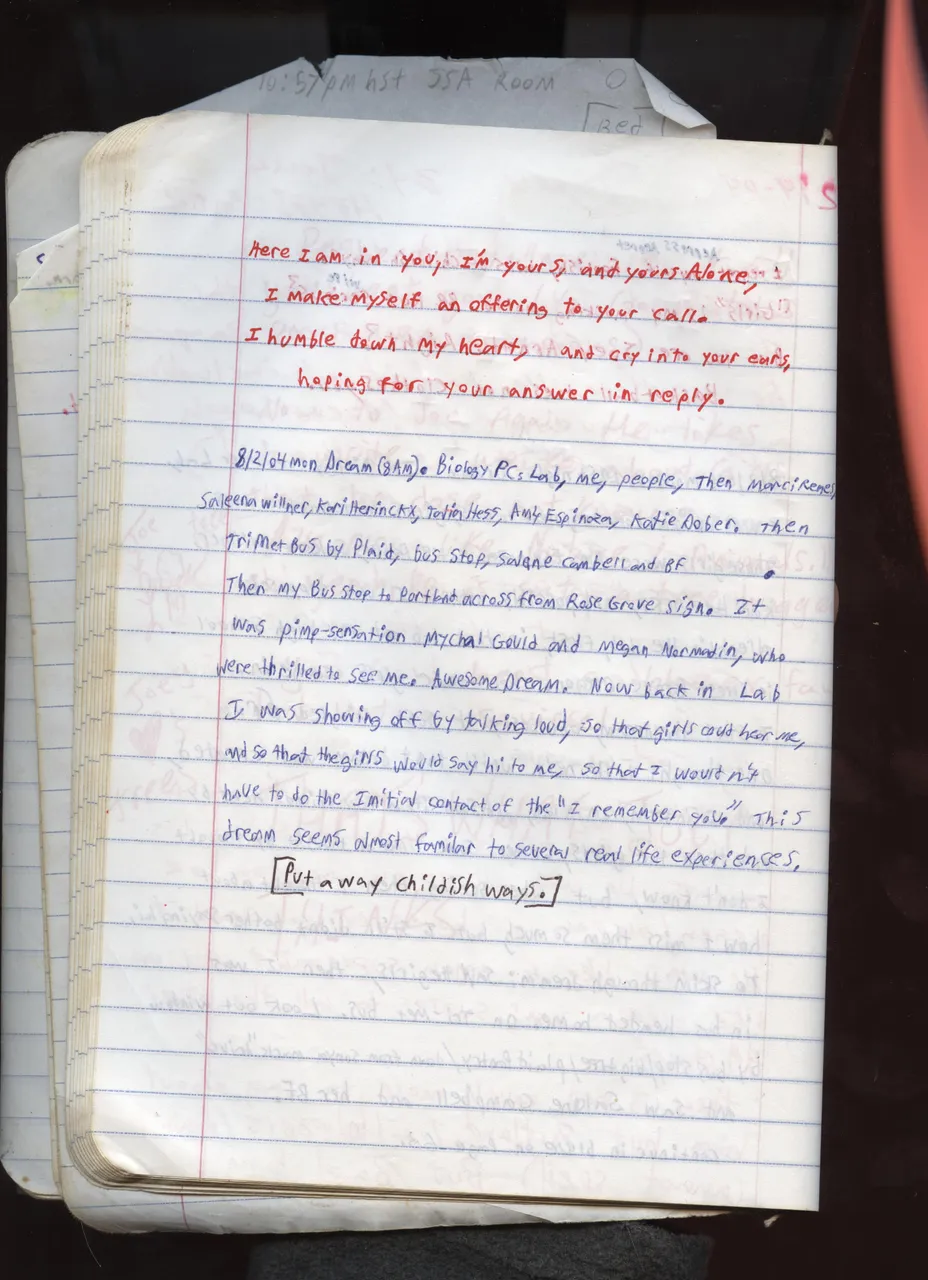 10:57pm hst JSA Room
Bed
Here I am in you, I'm yours, and yours Alone,
I make myself an offering to your call.
I humble down my heart, and cry into your ears,
hoping for your answer in reply.
8/2/04 mon Dream (8AM). Biology PCs Lab, me, people, Then
Saleena willner, Kori Herinckx, Talia Hess, Amy Espinoza, Katie Dober. Then
TriMet Bus by Plaid, bus stop, Salene Cambell and BF
Then my Bus stop to Portland across from Rose Grove sign. It
was pimp-sensation Mychal Gould and Megan Normadin, who
were thrilled to see me. Awesome Dream. Now back in Lab
I was showing off by talking loud, so that girls could hear me,
and so that the girls would say hi to me, so that I wouldn't
have to do the Imitial contact of the "I remember you." This
dream seems almost familar to several real life experiences.
[Put away childish ways.]